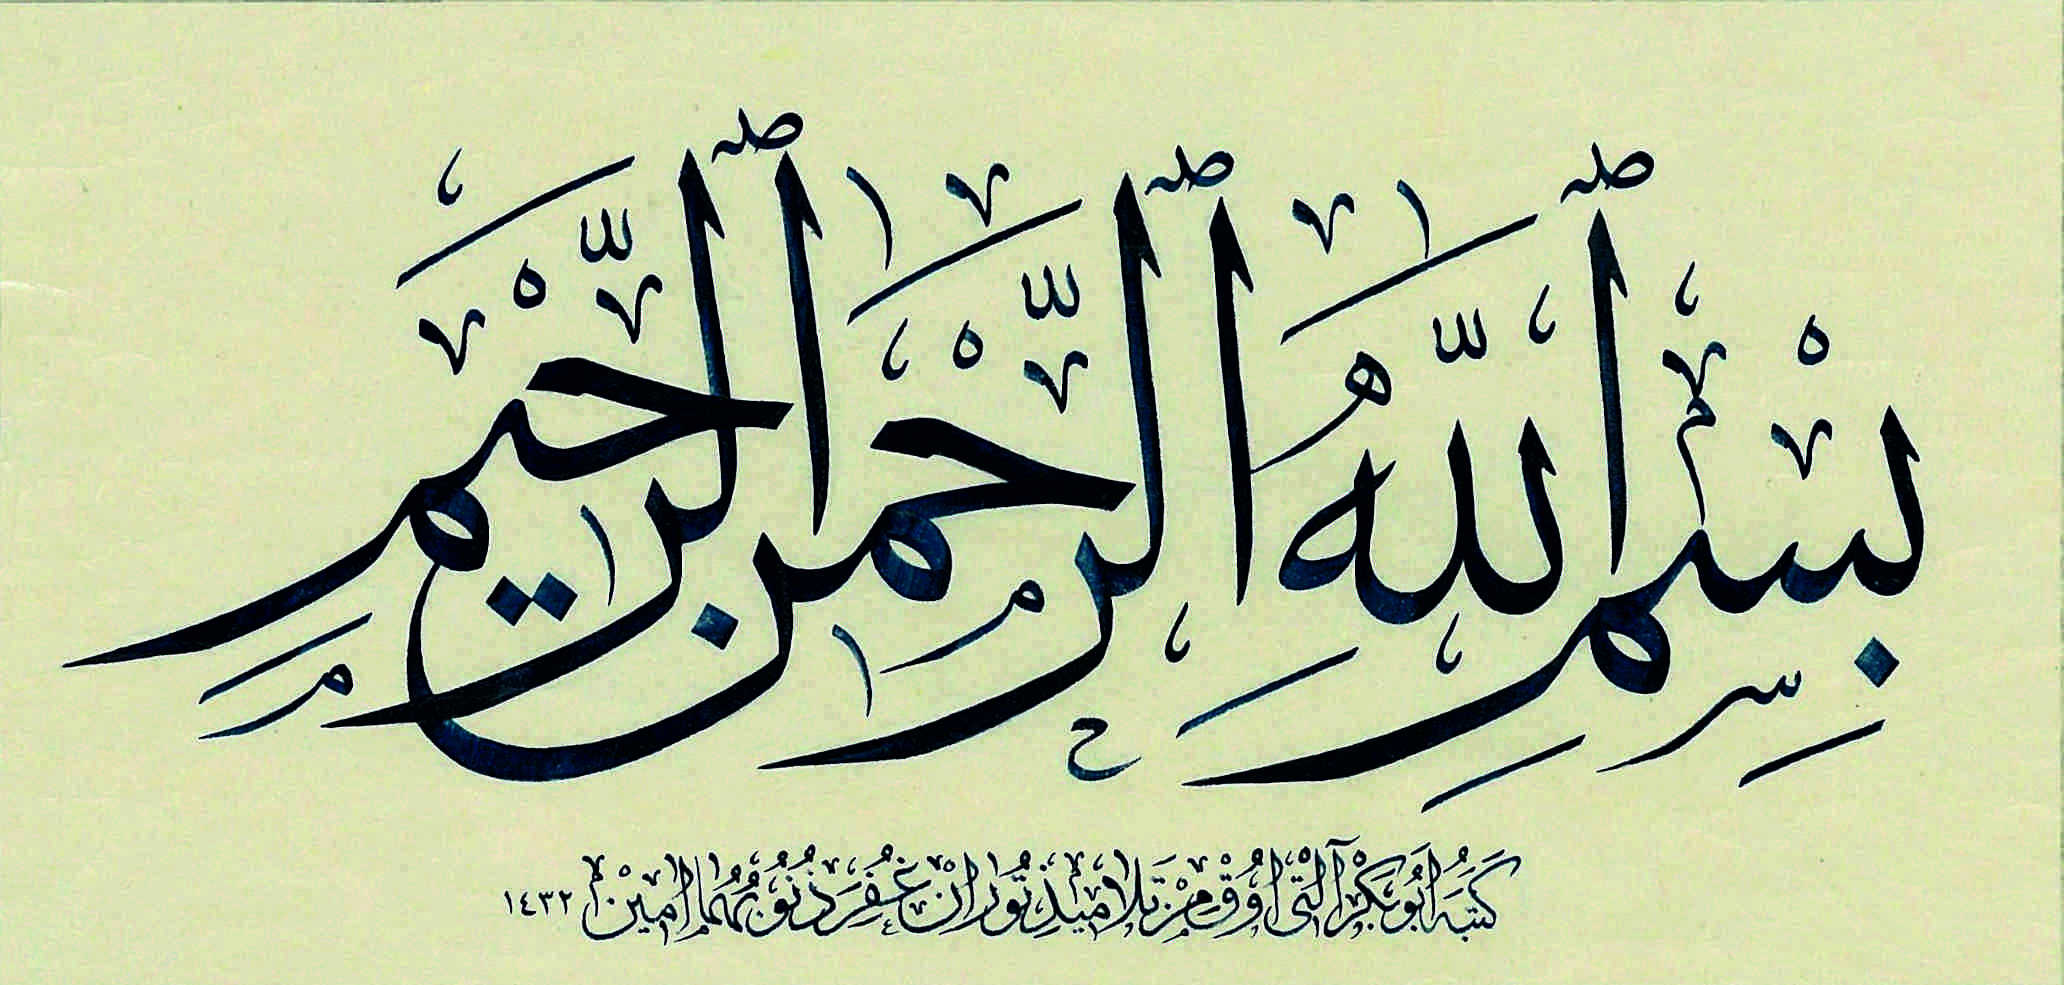 بِسْمِ ٱللَّهِ ٱلرَّحْمَٰنِ ٱلرَّحِيمِ
كتبه ابو بكر آلتي اوق من تلاميذ توران غفر ذنوبهما امين ١٤٣٢